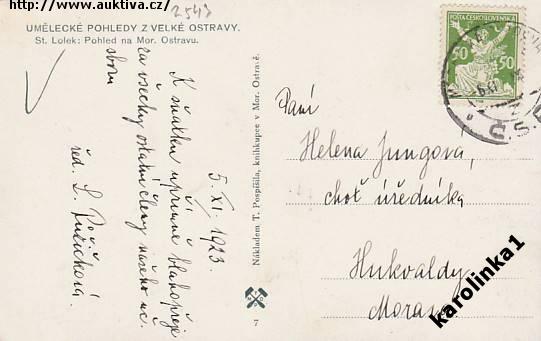 http://www.auktiva.cz/
2548
UMĚLECKÉ POHLEDY Z VELKÉ OSTRAVY.
St. Lolek: Pohled na Mor. Ostravu.
POŠTA ČESKOSLOVENSKÁ
50 50
5./XI. 1923.
K sňatku upřímně blahopřeje
za všechny ostatní členy našeho uč.
sboru
řed. L.
Nákladem T. Pospíšila, knihkupce v Mor. Ostravě.
7
Paní
Helena Jungová,
choť úředníka
Hukvaldy
Morava
karolinka1